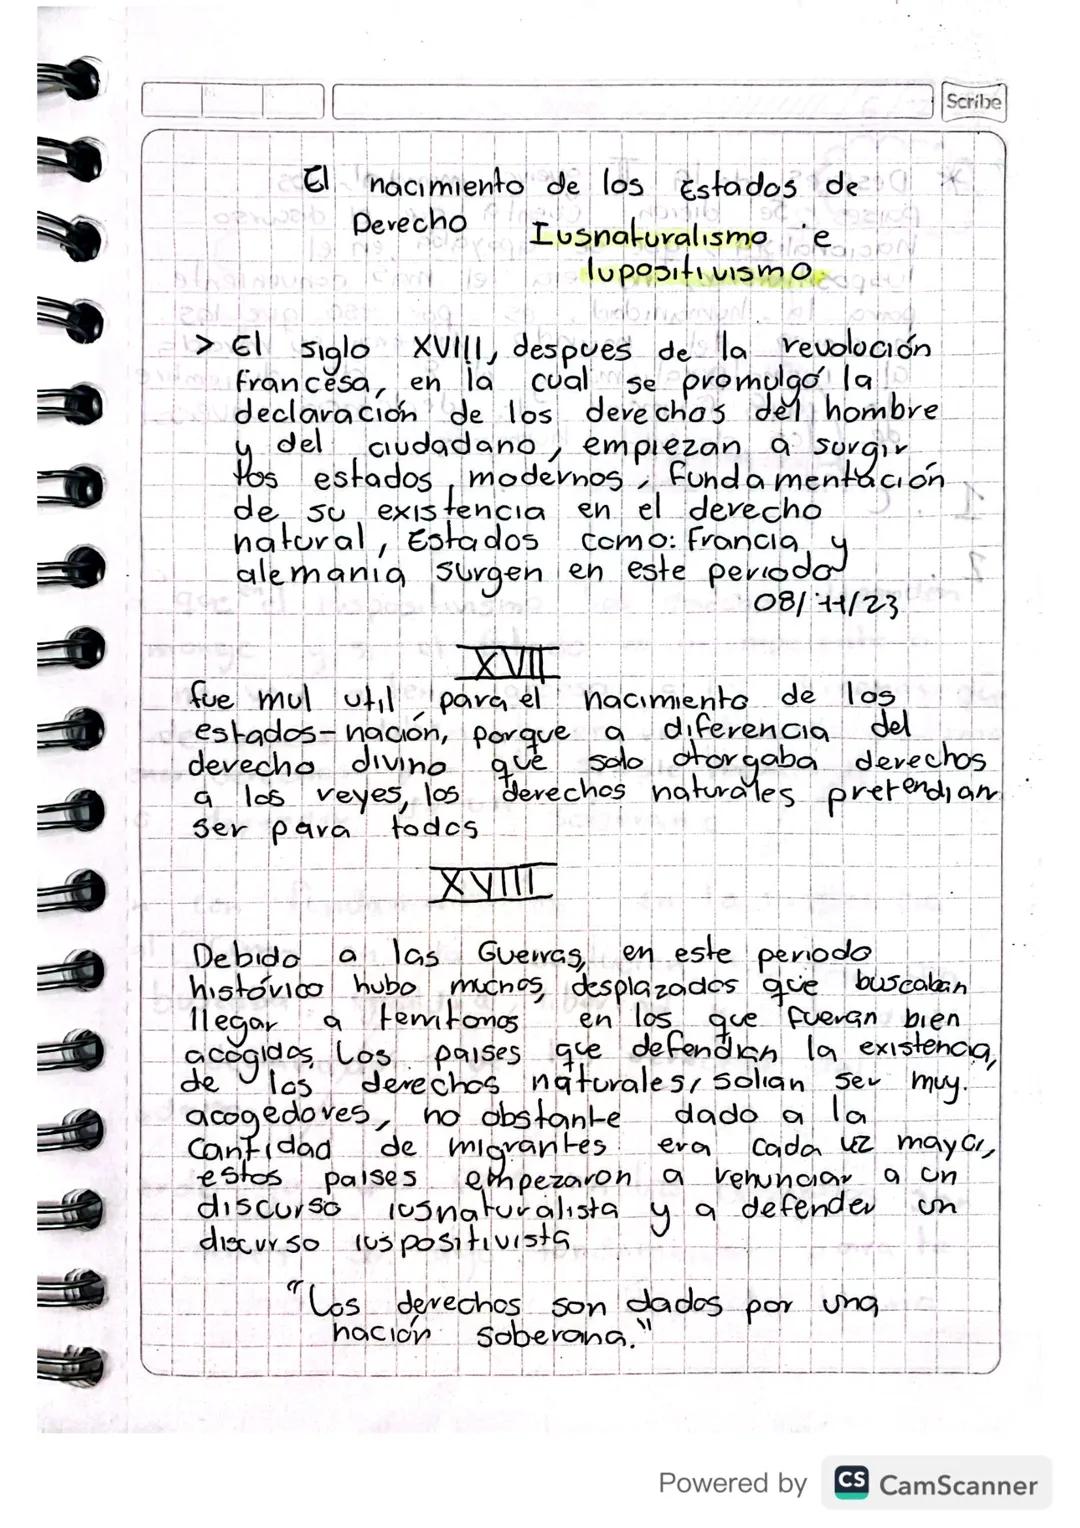 Scribe
El nacimiento de los Estados de
Derecho
Iusnaturalismo e
Iupositivismo.
> El siglo XVIII, despues de la revolución
francesa, en la cual se promulgó la
declaración de los derechos del hombre
y del ciudadano, empiezan a surgir
los estados modernos, fundamentación
de su existencia en el derecho
natural, Estados como: Francia y
alemania surgen en este periodo
08/11/23
XVII
fue mul util para el nacimiento de los
estados-nación, porque a diferencia del
derecho divino que solo otorgaba derechos
a los reyes, los derechos naturales pretendian
ser para todos
XVIII
Debido a las Guerras, en este periodo
histórico hubo muchos desplazados que buscaban
llegar a territorios en los que fueran bien
acogidos. Los paises que defendian la existencia,
de los derechos naturales, solian ser muy.
acogedores, no obstante dado a la
cantidad de migrantes era cada vz mayor,
estos paises empezaron a renunciar a un
discurso iusnaturalista y a defender un
discurso iuspositivista
"Los derechos son dados por una
nación soberana."
Powered by CS CamScanner